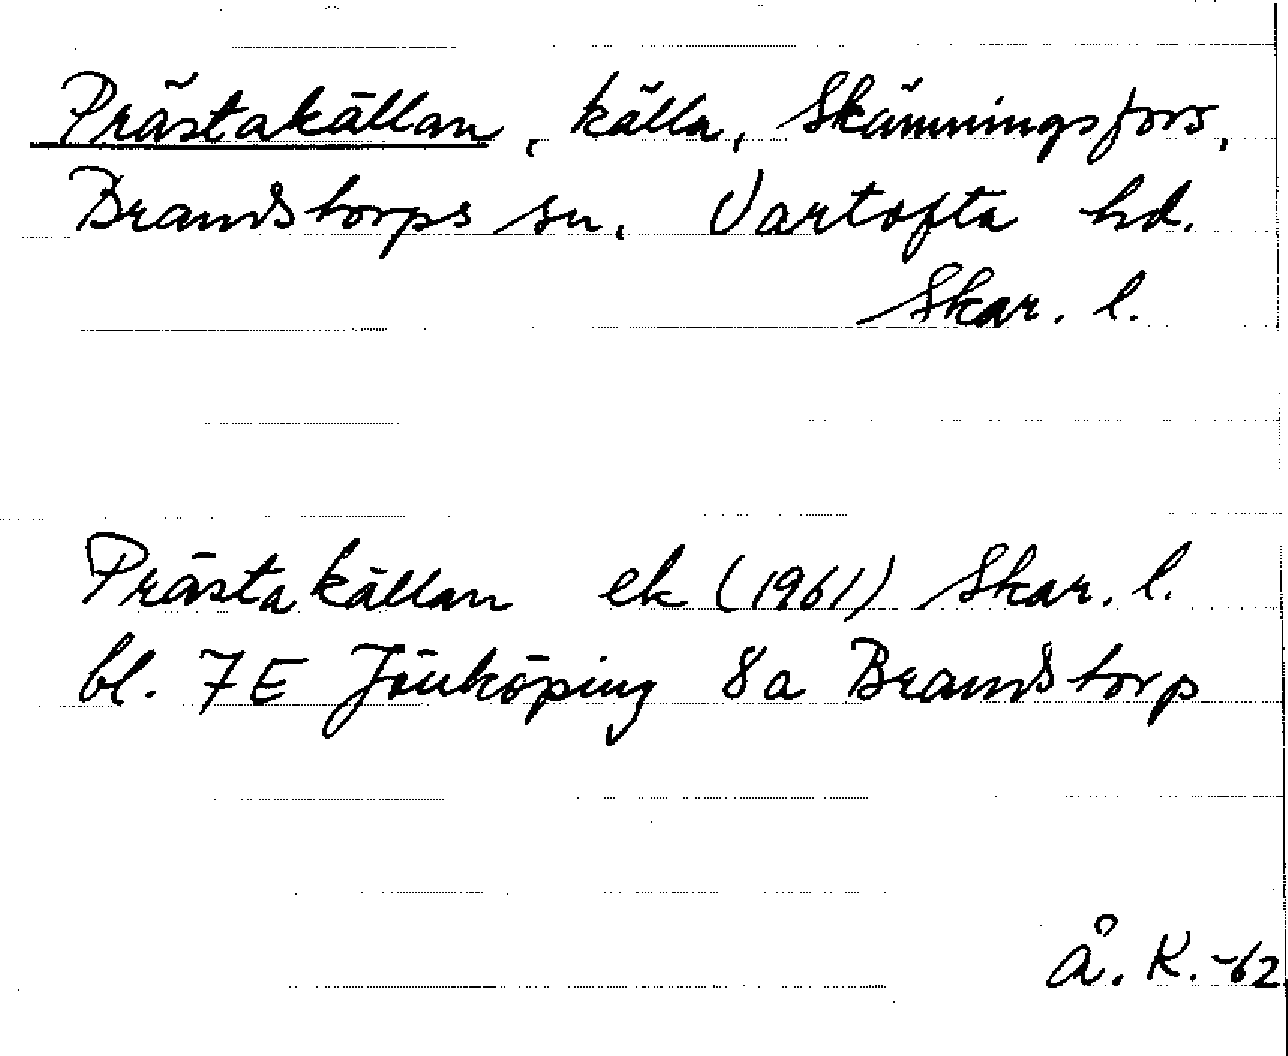 Prästakällan, källa, Skämningsfors,
Brandstorps sn. Vartofta hd.
Skar. l.
Prästakällan ek (1961) Skar. l.
bl. 7E Jönköping 8a Brandstorp
Å. K. -62